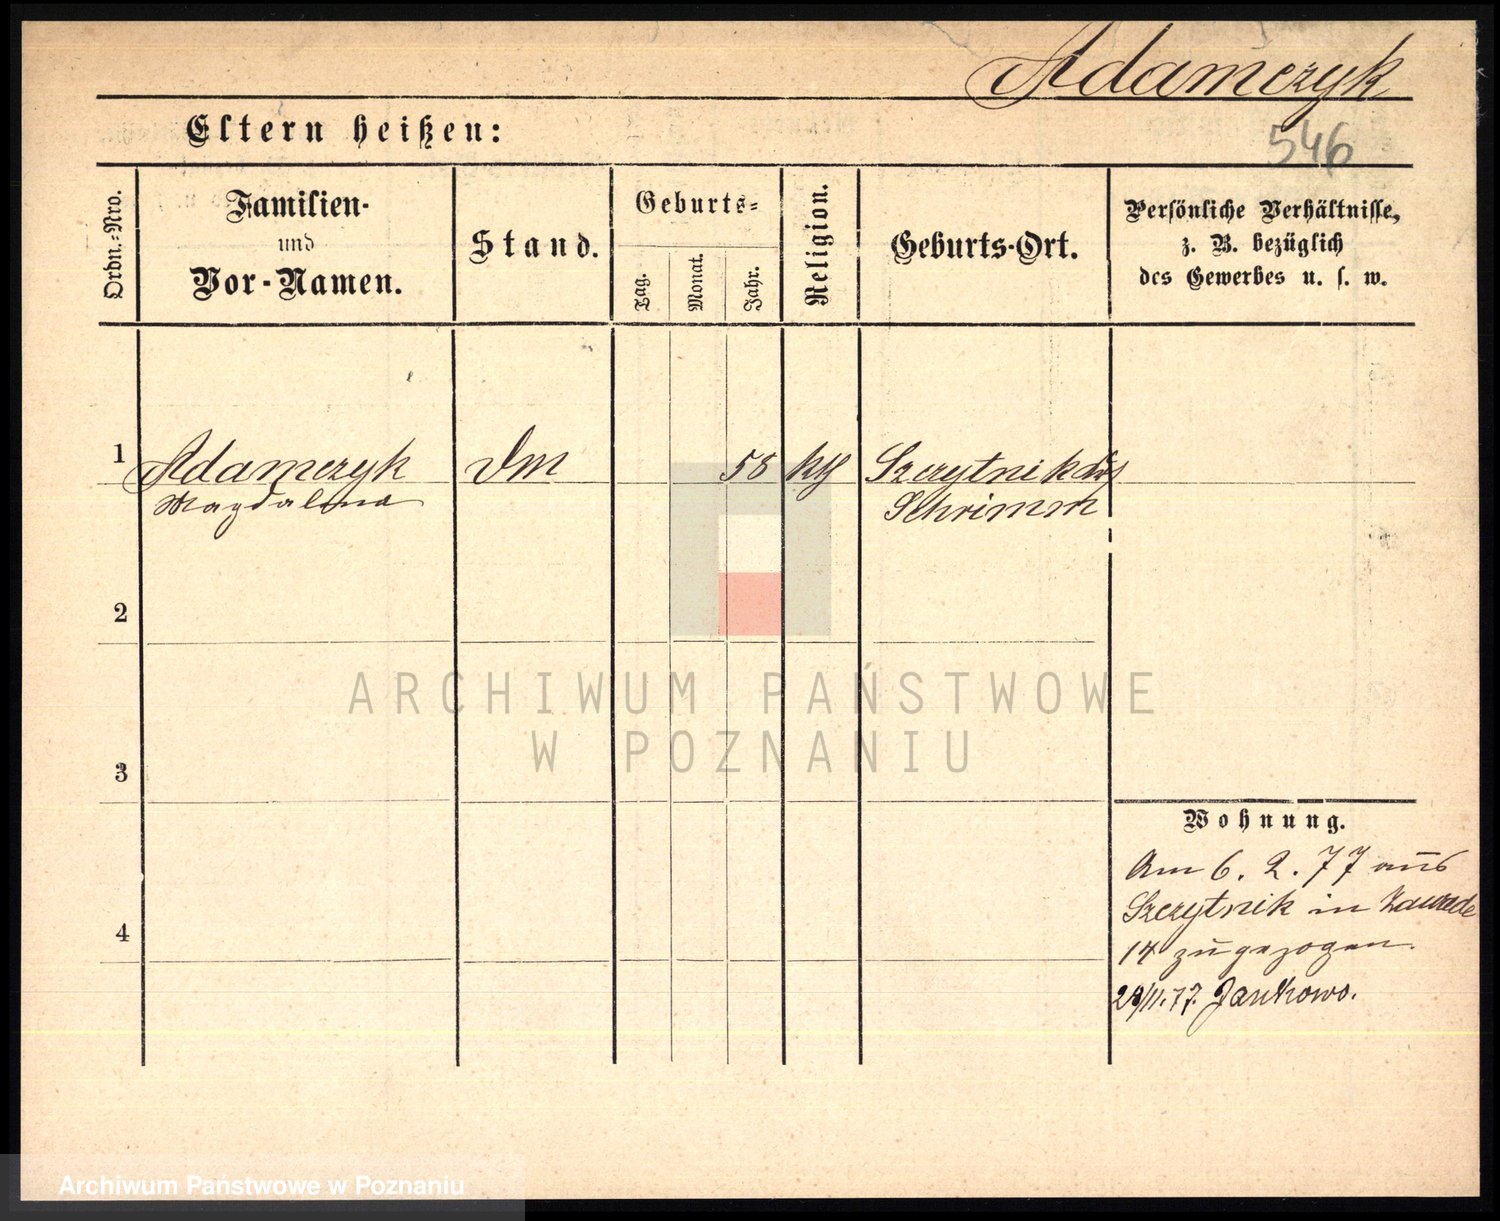 Adamczyk
Eltern heißen:
546
Ordn.-Nro.
Familien-
und
Vor-Namen.
Stand.
Geburts-
Tag.
Monat.
Jahr.
Religion.
Geburts-Ort.
Persönliche Verhältnisse,
z. B. bezüglich
des Gewerbes u. s. w.
1
Adamczyk DM 58 kth Szczytnik
Magdalena Schrimm
2
ARCHIWUM PAŃSTWOWE
W POZNANIU
3
Wohnung.
Am 6. 2. 77 aus
Szczytnik in Zawade
4
14 zugezogen.
28/11.77. Jankowo.
Archiwum Państwowe w Poznaniu